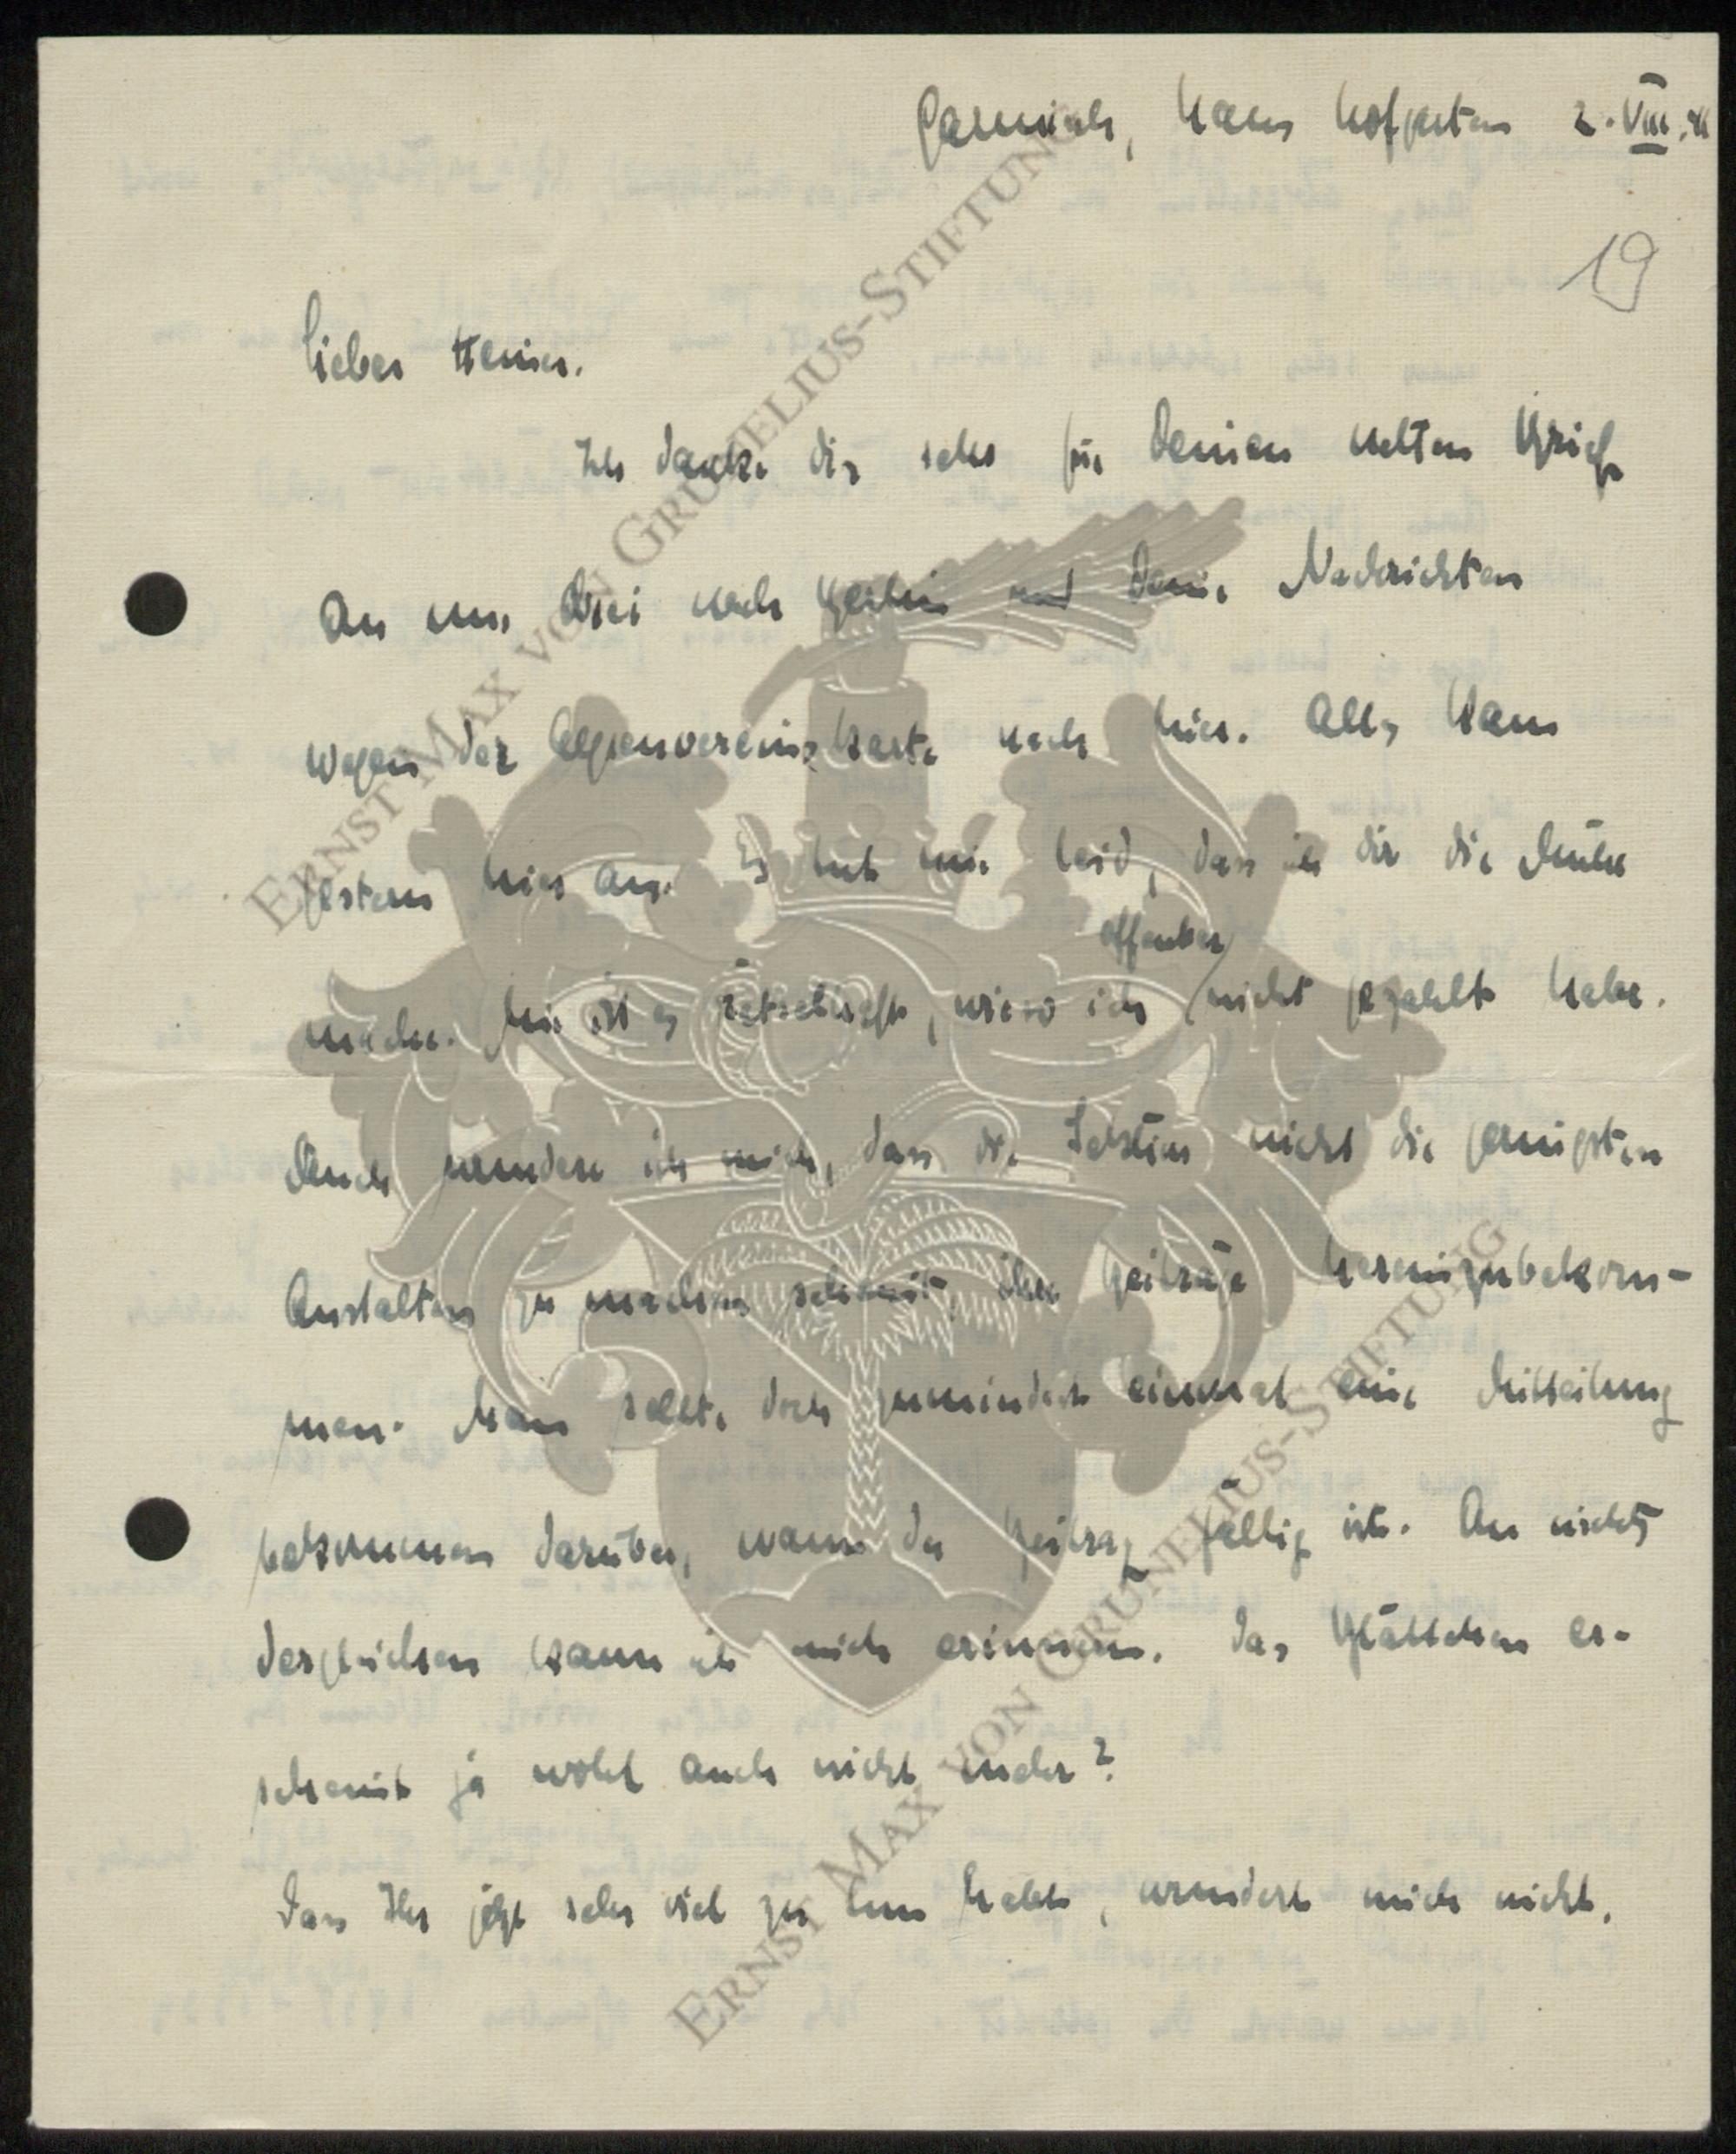 Garmisch, Haus Hofgarten 2.VIII.
19
Lieber Heiner.
Ich danke dir sehr für Deinen netten Brief
an uns Drei nach Berlin und Deine Nachrichten
wegen der Alpenvereinskarte nach hier. Alles kam
gestern hier an. Es tut mir leid, dass ich dir die Mühe
offenbar
mache. Mir ist es rätselhaft, wieso ich nicht gezahlt habe.
Auch wundere ich mich, dass die Sektion nicht die geringsten
Anstalten zu machen scheint, ihre Beiträge hereinzubekom-
men. Man sollte doch zumindest einmal eine Mitteilung
bekommen darüber, wann der Beitrag fällig ist. An nichts
dergleichen kann ich mich erinnern. Das Blättchen er-
scheint ja wohl auch nicht mehr?
Dass Ihr jetzt sehr viel zu tun habt, wundert mich nicht.
ERNST MAX VON GRUNELIUS-STIFTUNG
ERNST MAX VON GRUNELIUS-STIFTUNG